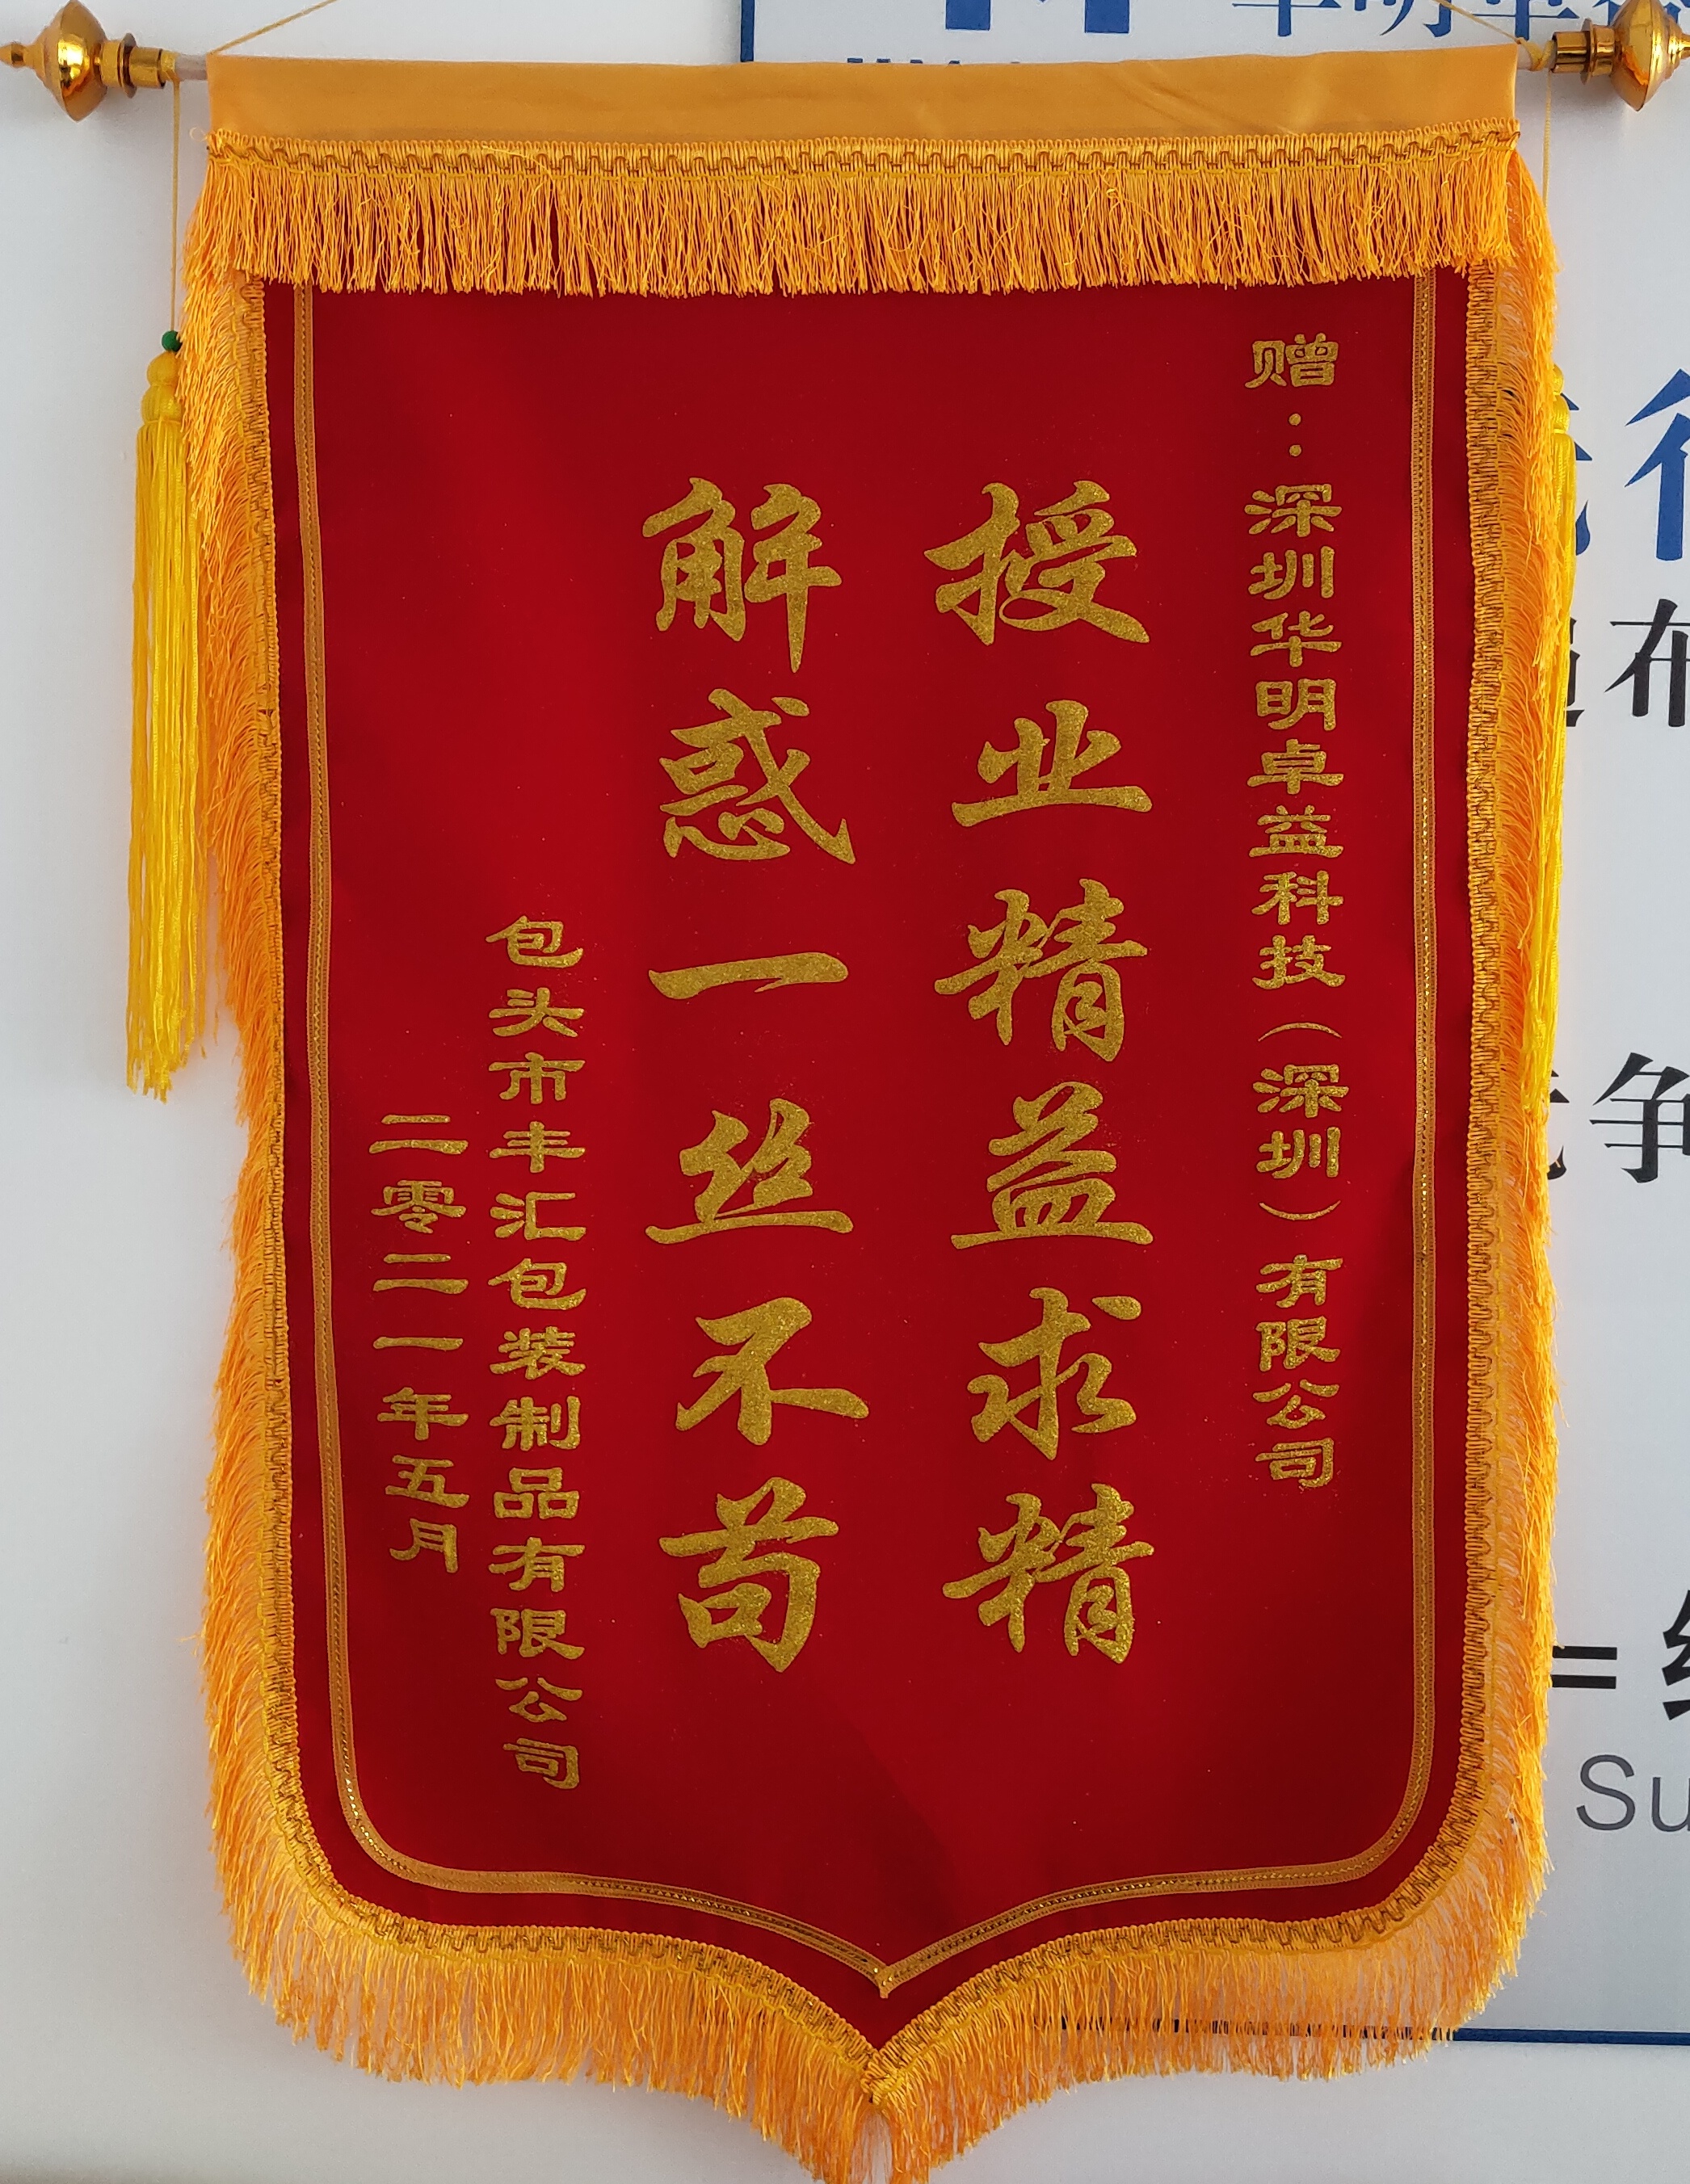 赠：深圳华明卓益科技（深圳）有限公司
授业精益求精
解惑一丝不苟
包头市丰汇包装制品有限公司
二零二一年五月
布
争
=
Su